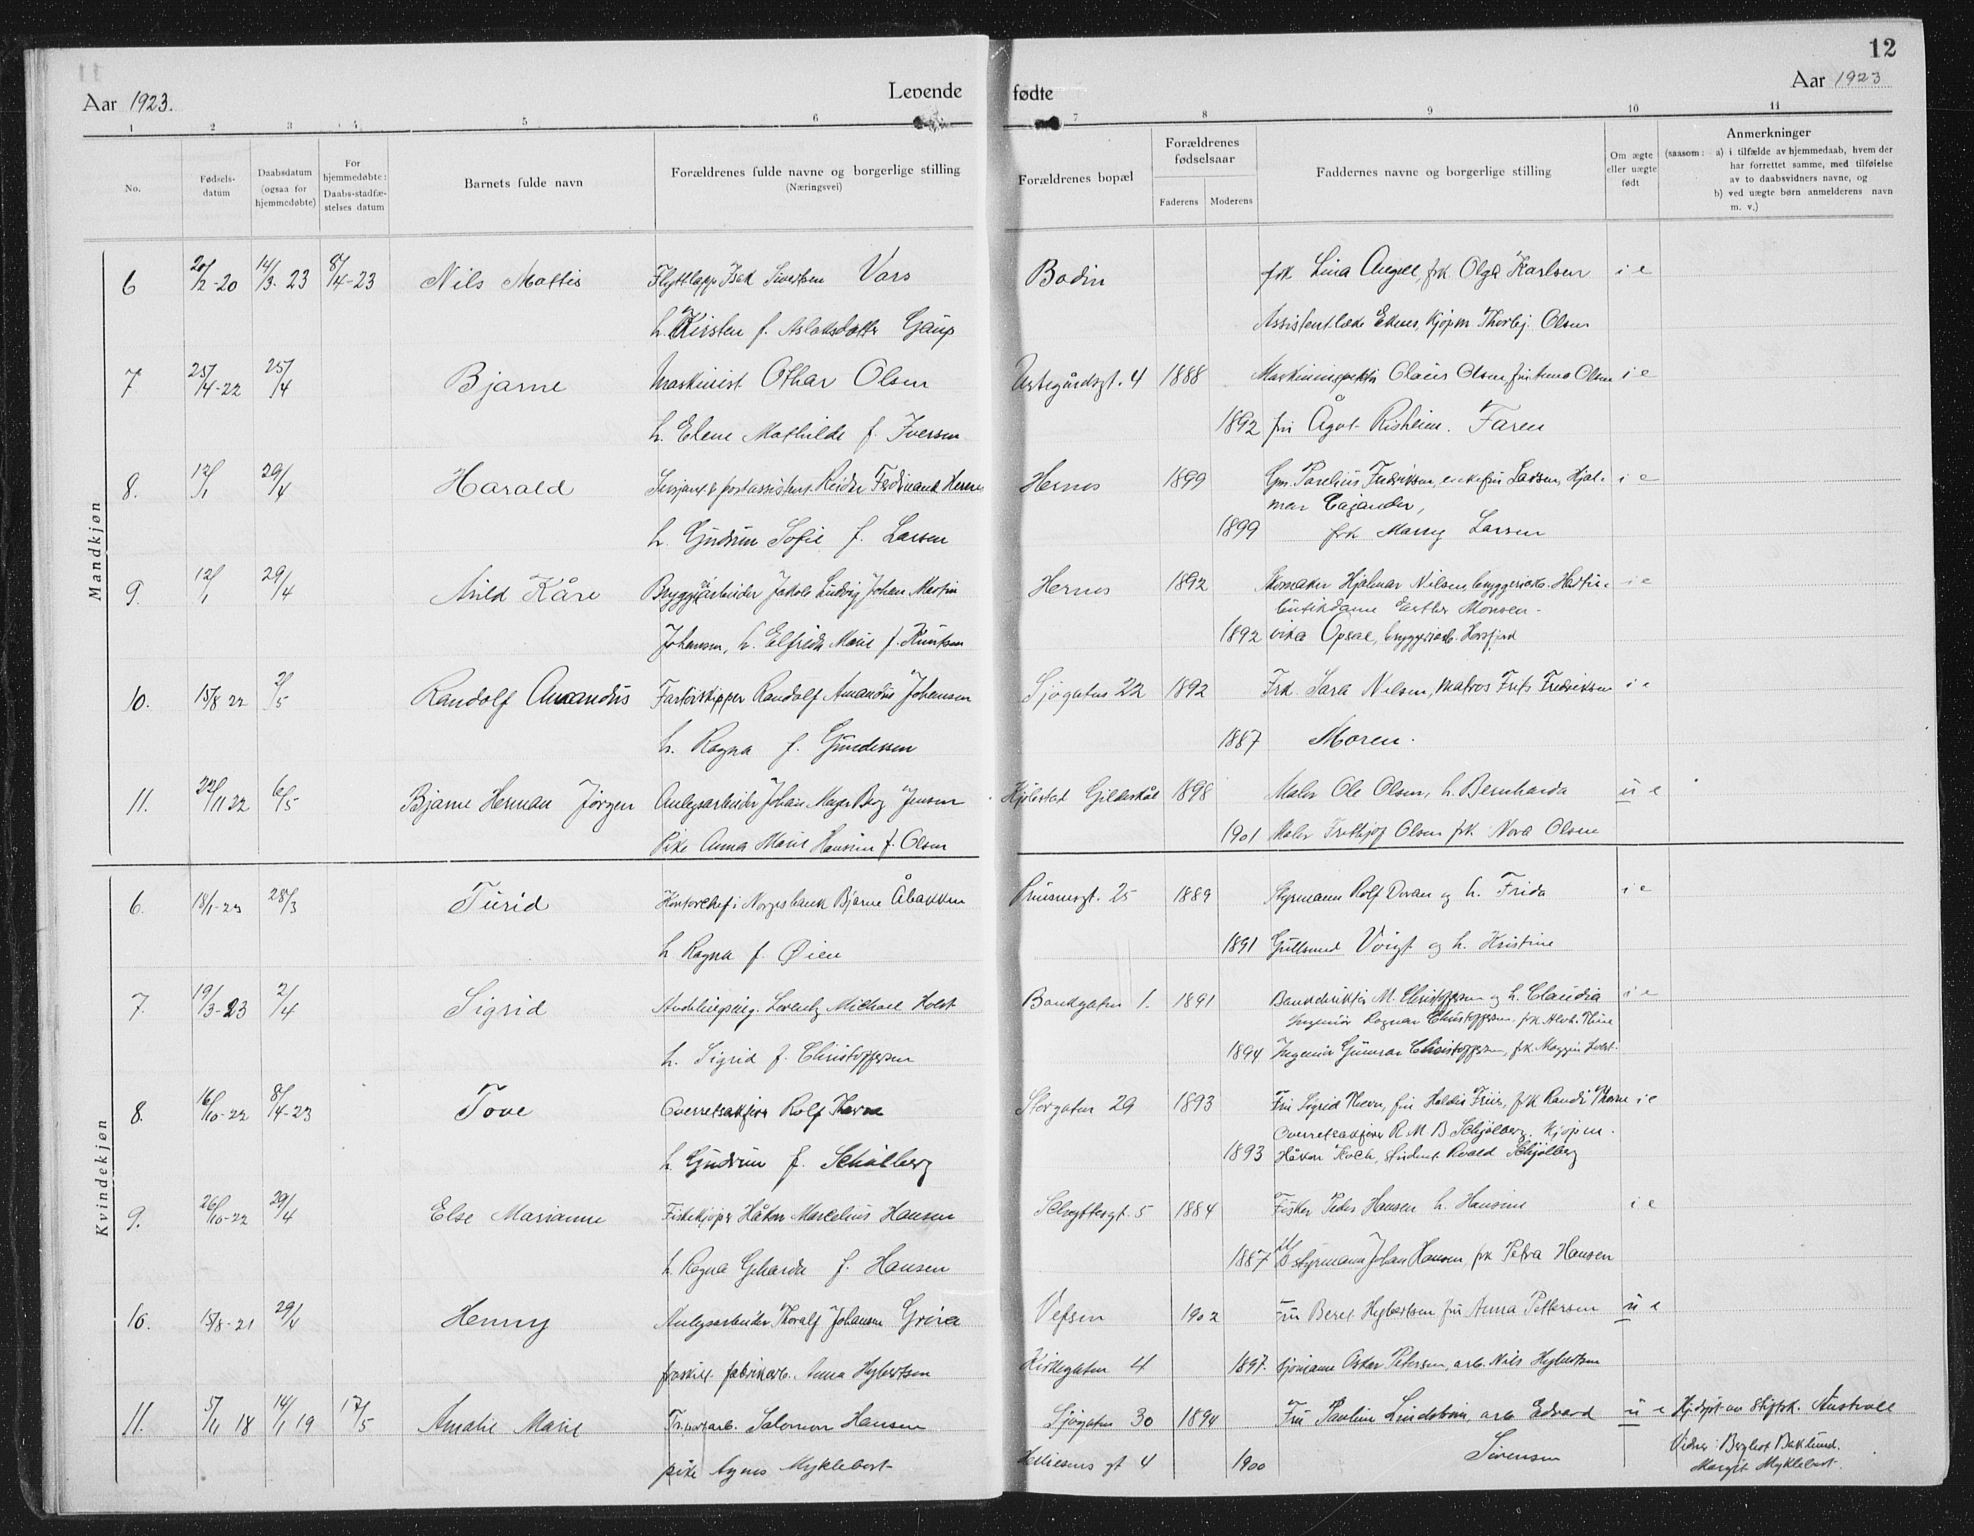 12
Aar 1923.
Levende
fødte
Aar 1923
1 2 3 4 5 6 7 8 9 10 11
No.
Fødsels-
datum
Daabsdatum
(ogsaa for
hjemmedøbte)
For
hjemmedøbte:
Daabs-stadfæ-
stelses datum
Barnets fulde navn
Forældrenes fulde navne og borgerlige stilling
(Næringsvei)
Forældrenes bopæl
Forældrenes
fødselsaar
Faderens Moderens
Faddernes navne og borgerlige stilling
Om ægte
eller uægte
født
Anmerkninger
(saasom: a) i tilfælde av hjemmedaab, hvem der
har forrettet samme, med tilføielse
av to daabsvidners navne, og
b) ved uægte børn anmelderens navn
m. v.)
Mandkjøn
6 20/2-20 14/3-23 8/4-23 Nils Mattis Flytlapp Isak Sivertsen Vars Bodin frk Lina Angell, frk. Olga Karlsen i e
h. Kirsten f. Aslaksdatter Gaup Assistentlæke Eknes, kjøpm Thorbj. Olsen
7 25/4-22 25/4 Bjarne Maskinist Othar Olsen 4 1888 Claus Olsen, fru Anna Olsen i e
h. Elene Mathilde f. Iversen 1892 fru Ågot Risheim. Faren
8. 12/1 29/4 Harald postassistent Reidar Ferdinand Hernes Hernes 1899 Fredriksen, enkefru Larsen, Hjal- i e
mar Cajander,
h. Gudrun Sofie f. Larsen 1899 frk Larsen
9. 12/1 29/4 Arild Kåre Bryggeriarbeider Jakob Ludvig Johan Martin Hernes 1892 Skomaker Hjalmar Nilsen, bryggeriarb. i e
butikdame Esther Monsen
Johansen, h. Elfrida Marie f. Knutsen 1892 Opsal, bryggeriarb. Horsfjord
10. 15/8 22 2/5 Randolf Amandus Randolf Amandus Johansen Sjøgaten 22 1892 Frk. Sara Nilsen, matros Frits Fredriksen i e
h. Ragna f. Gundersen 1887 Moren.
11. 22/11 22 6/5 Bjarne Herman Jørgen Anlegsarbeider Johan Meyer Berg Jensen Gildeskål 1898 Maler Ole Olsen, h. Bernharda u e
Pike Anna Marie Hansen f. Olsen 1901 Maler Frithjof Olsen frk. Nora Olsen
Kvindekjøn
6. 18/1-23 28/3 Turid Kontorchef i Norges bank Bjarne Åbakken Prinsensgt. 25 1889 Styrmann Rolf Dovan og h. Frida i e
h Ragna f. Øien 1891 Gullsmed Voigt og h. Kristine
7. 19/3-23 2/4 Sigrid Lorentz Michael Holst Bankgaten 1. 1891 Bankdirektør M. Christoffersen og h. Claudia i e
Ingeniør Ragnar Christoffersen, frk
h. Sigrid f. Christoffersen 1894 Ingeniør Gunnar Christoffersen, frk. Holst.
8. 16/10-22 8/4-23 Tove Overretsakfører Rolf Storgaten 29 1893 Fru Sigrid fru Friis, frk Randi i e
Overretsakfører R. M. B. Schjølberg. Kjøpm.
h. Gudrun f. Schølberg 1893 Håkon Koch, student Schjølberg
9. 26/10-22 29/4 Else Marianne Fiskekjøper Håkon Marcelius Hansen 5 1884 Fisker Peder Hansen h. Hansine i e
h. Ragna Gerharda f. Hansen 1887 styrmann Johan Hansen, frk Petra Hansen
10. 15/8-21 29/4 Henny Anlegsarbeider Thoralf Johansen Vefsen 1902 Fru Beret Hybertsen fru Anna Pettersen u e
fraskil. fabrikarb. Anna Hybertsen Kirkegaten 4 1897. Sjømann Oskar Petersen, arb. Nils Hybertsen
11. 5/11 18 14/1 19 17/5 Amalie Marie Salomon Hansen Sjøgaten 30 1894 Fru Pauline Lindstrøm, arb Edvard u e Hj.døpt av Australl
Sivertsen
pike Agnes Myklebost gt 4 1900
Vidner: Bergliot Baklund.
Margit Myklebost.